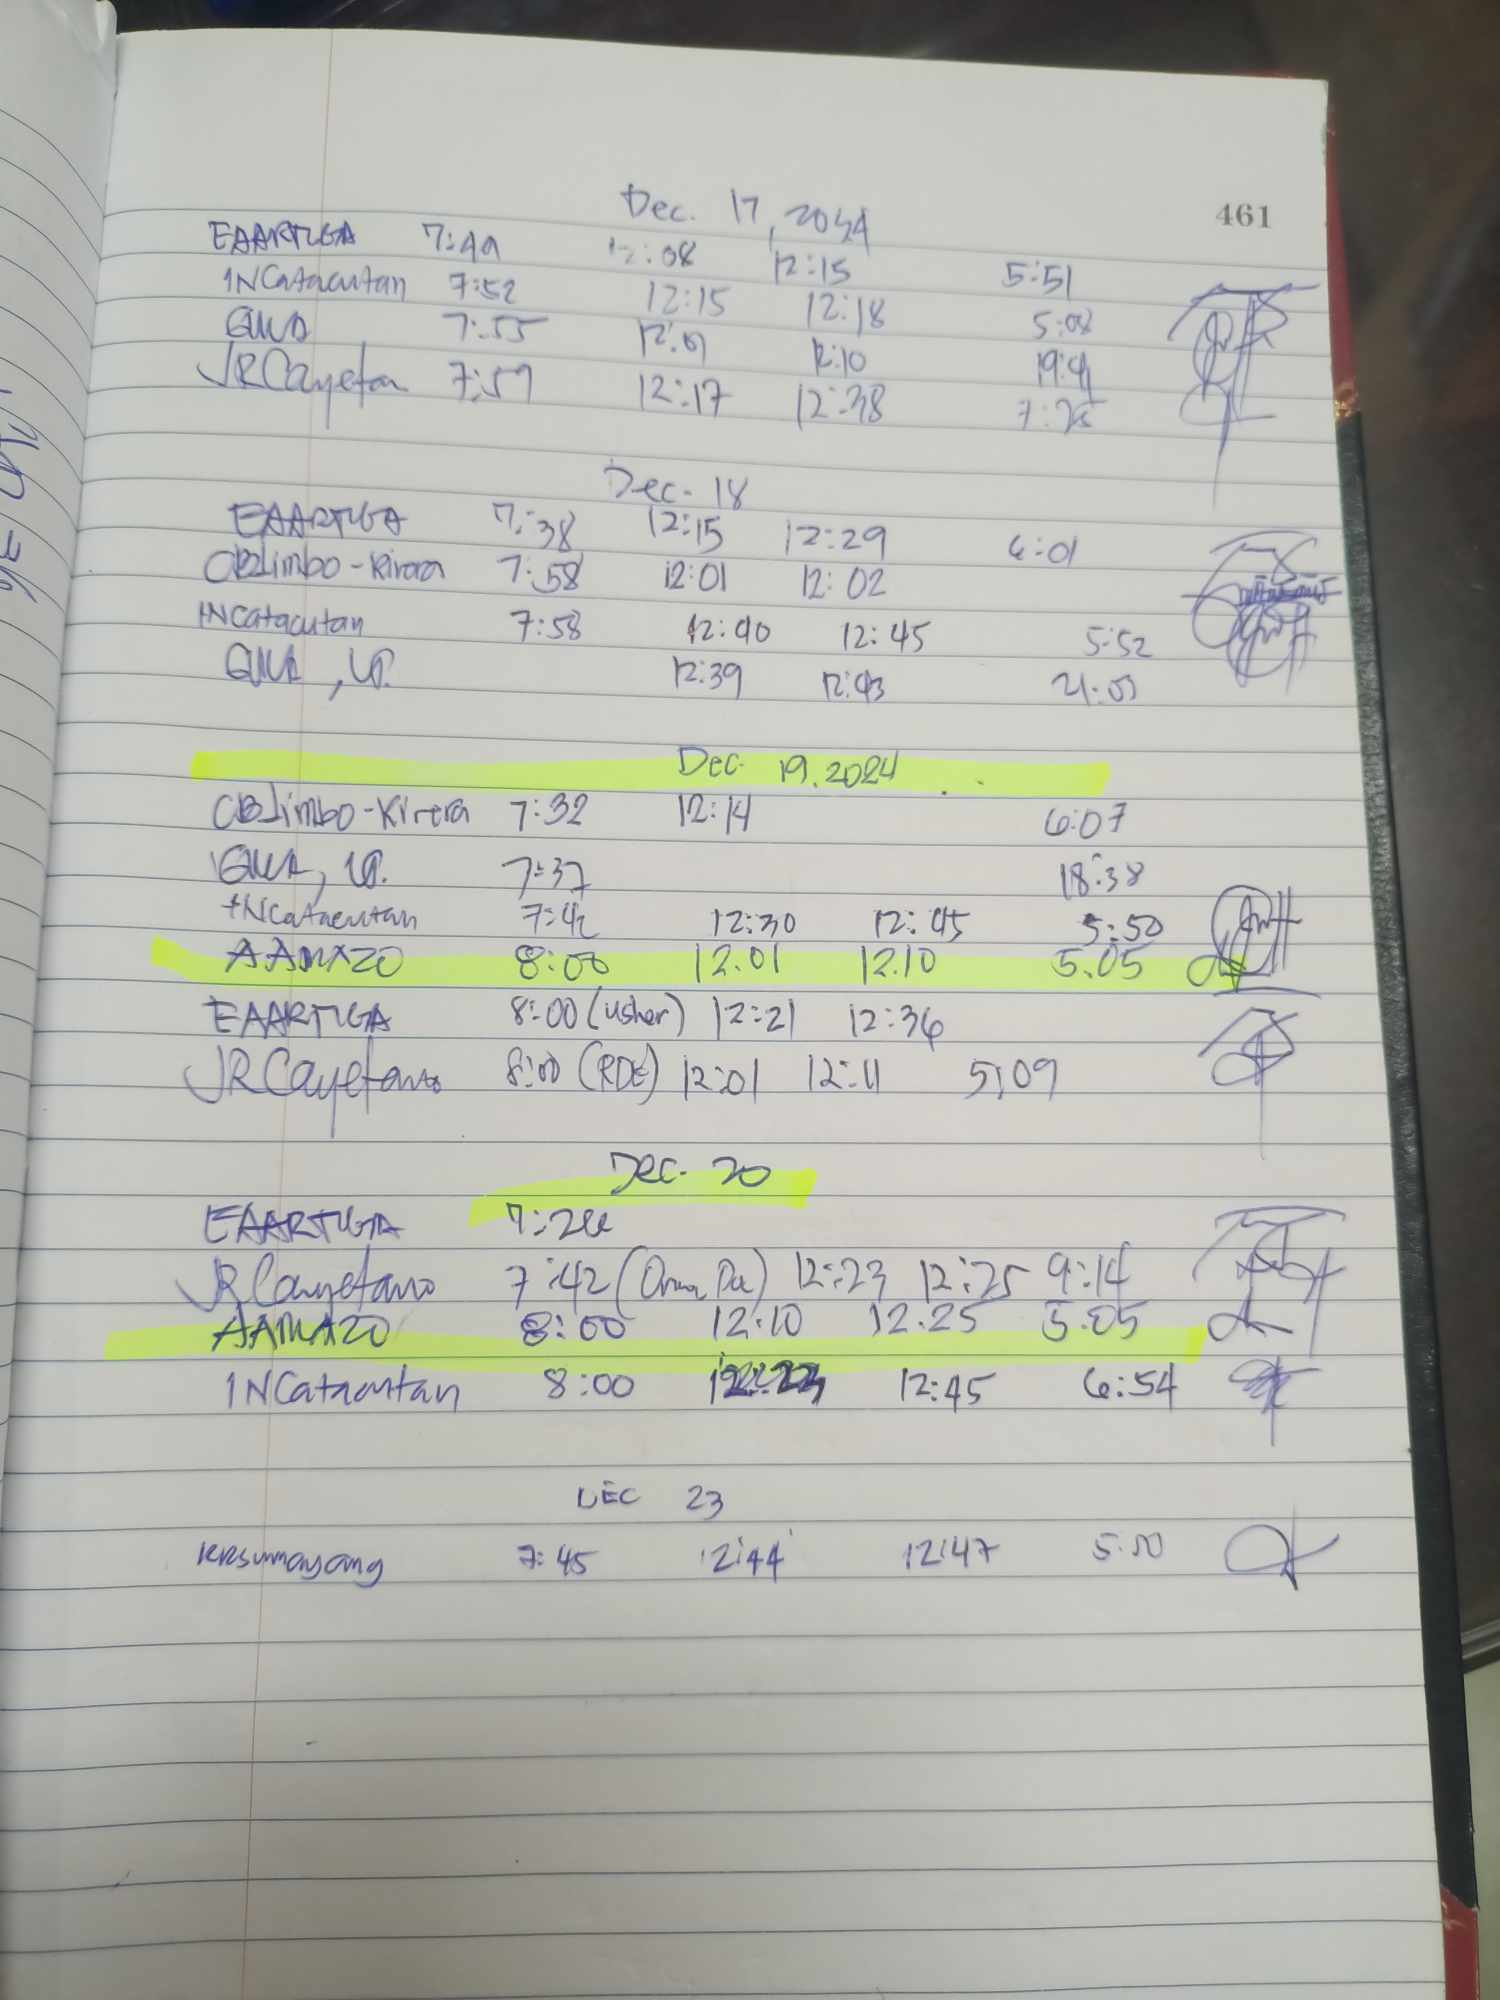 461
Dec. 17, 2024
EAARTIGA 7:49 12:08 12:15 5:51
INCatacutan 7:52 12:15 12:18 5:08
7:55 12:09 12:10 19:41
JRCayetan 7:59 12:17 12:38 7:25
Dec. 18
EAARTIGA 7:38 12:15 12:29 6:01
CBLimbo-Kirera 7:58 12:01 12:02
INCatacutan 7:58 12:40 12:45 5:52
12:39 12:43 21:03
Dec. 19. 2024
CBLimbo-Kirera 7:32 12:14 6:07
7:37 18:38
INCatacutan 7:42 12:30 12:45 5:50
AAMAZO 8:00 12.01 12.10 5.05
EAARTIGA 8:00 (usher) 12:21 12:36
JRCayetano 8:00 (RDE) 12:01 12:11 5:09
Dec. 20
EAARTIGA 7:26
JRCayetano 7:42 12:23 12:25 9:14
AAMAZO 8:00 12.10 12.25 5.05
INCatacutan 8:00 12:45 6:54
DEC 23
KRSumayang 7:45 12:44 12:47 5:00